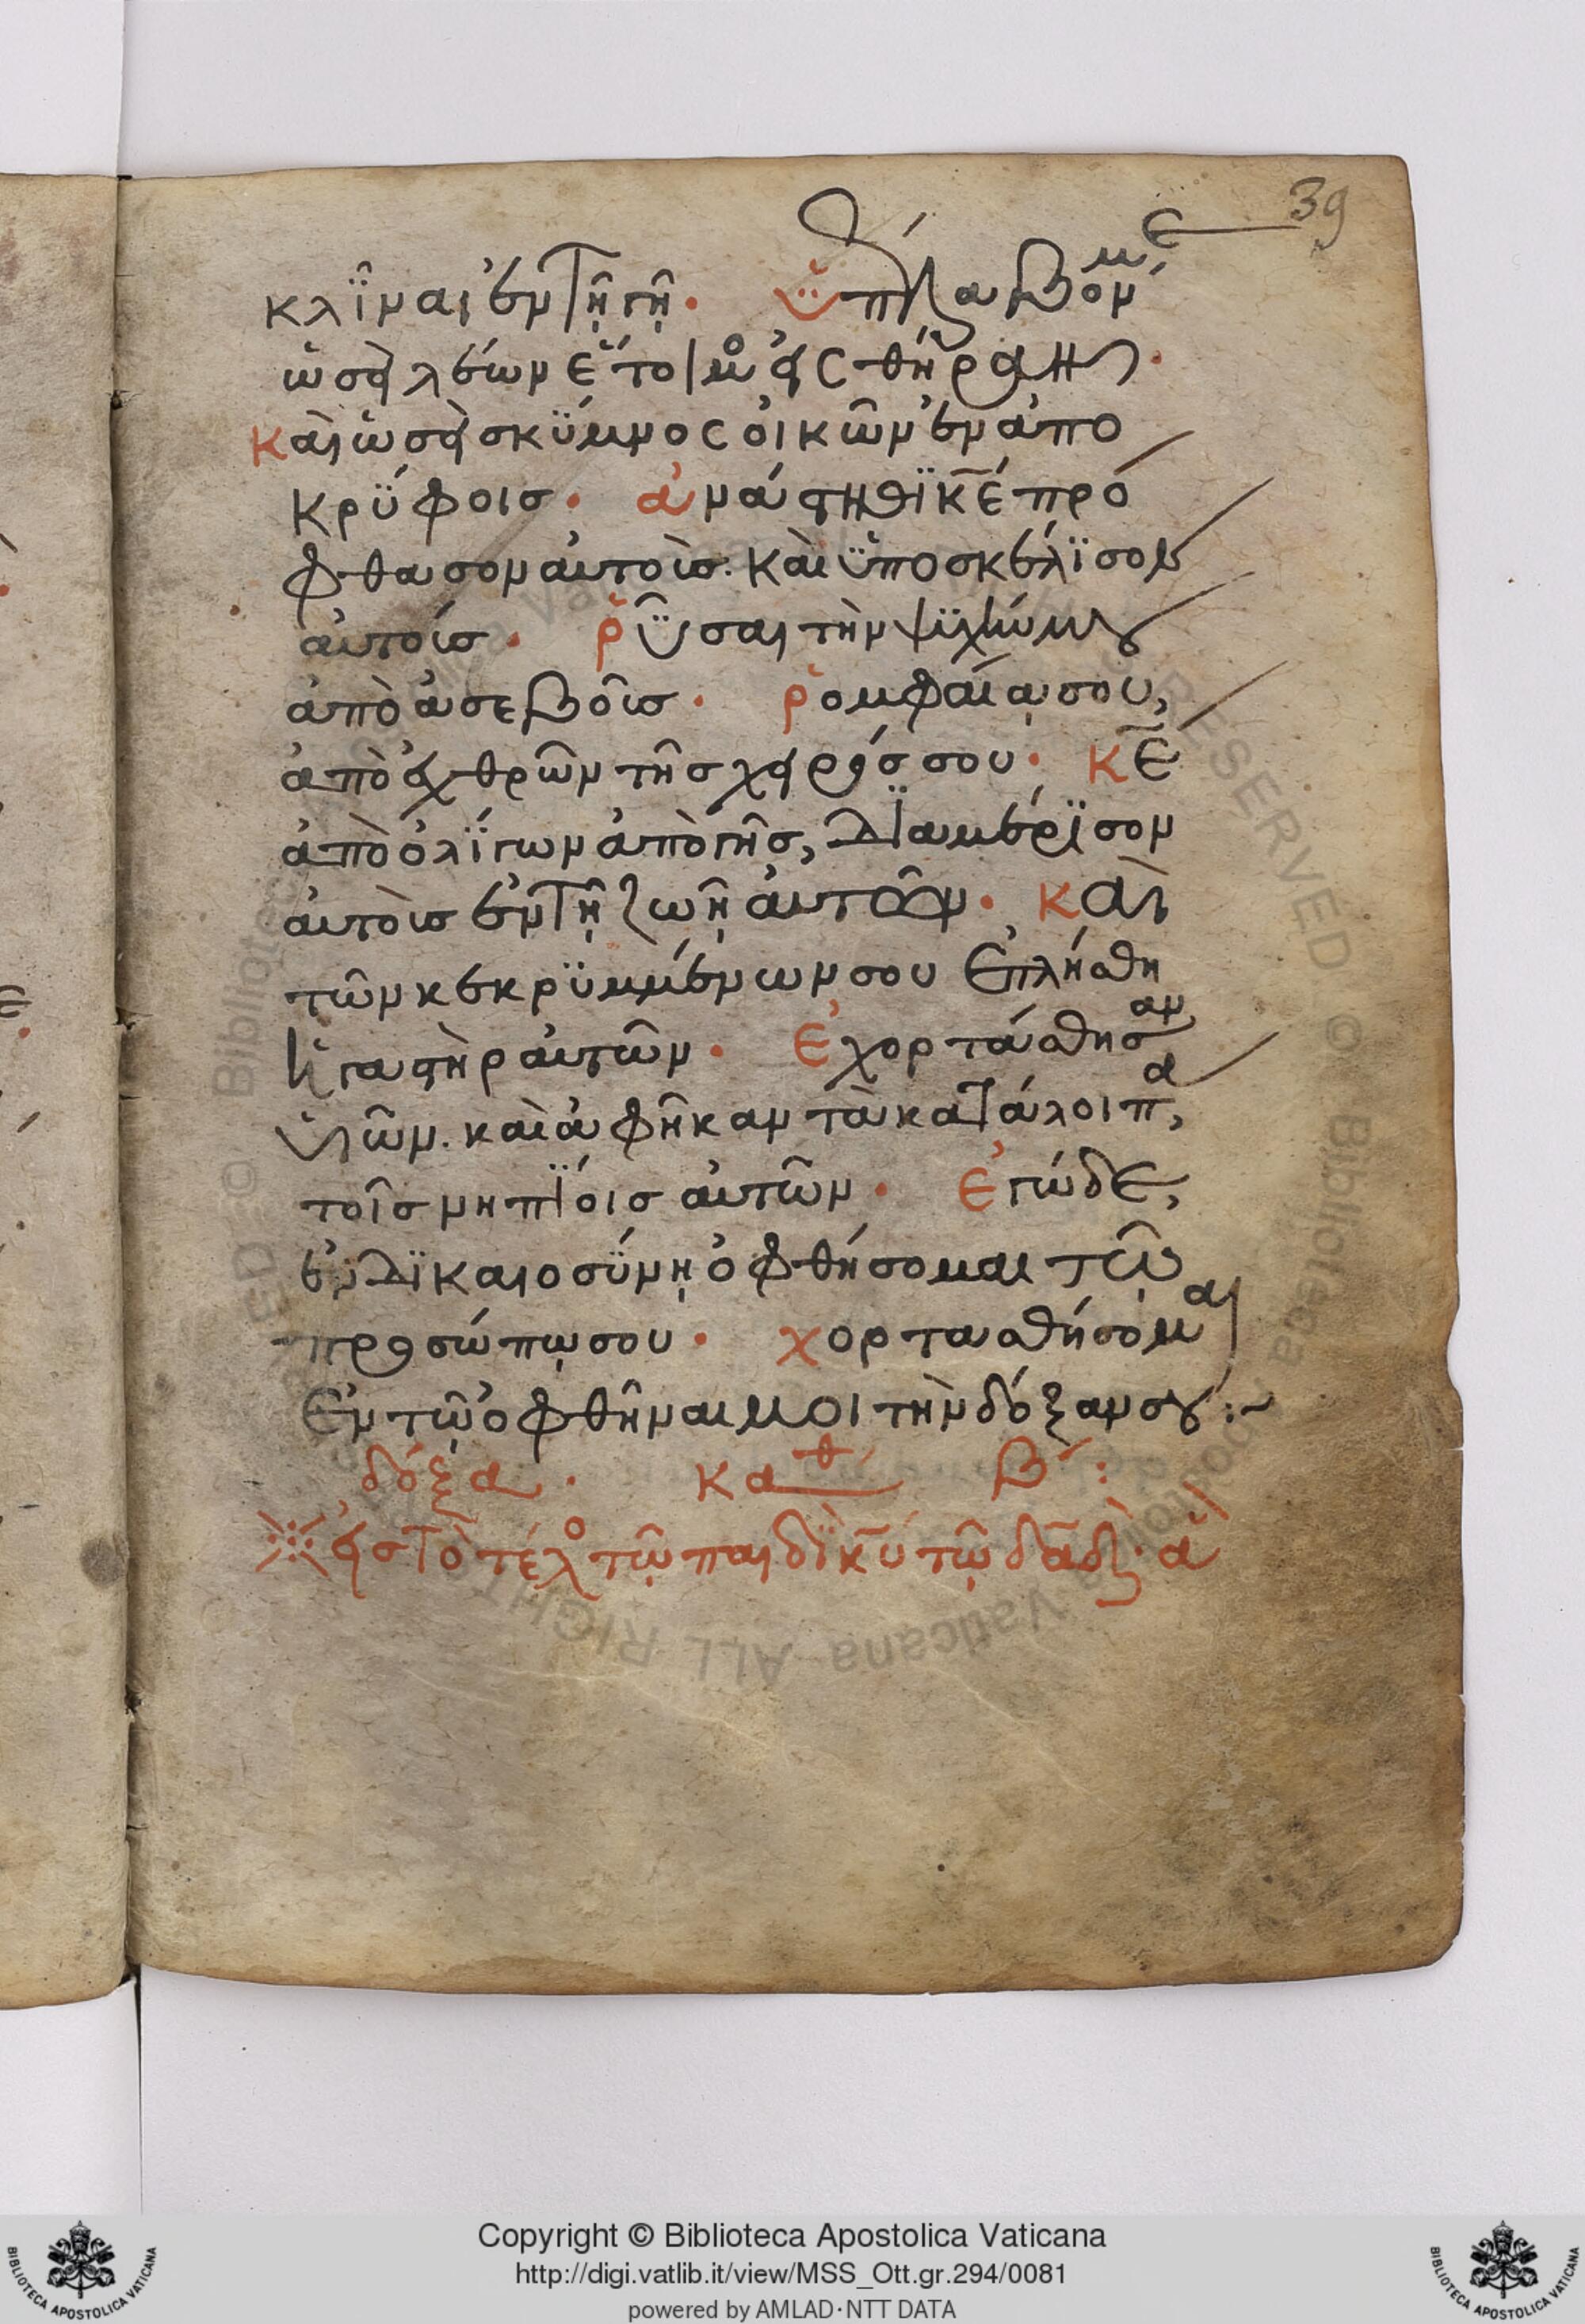 39
κλῖναι ἐν τῇ γῇ. ὑπέλαβόν με
ὡσεὶ λέων ἕτοιμος εἰς θήραν.
καὶ ὡσεὶ σκύμνος οἰκῶν ἐν ἀπο
κρύφοις. ἀνάστηθι κ̅ε̅ πρό
φθασον αὐτοὺς. καὶ ὑποσκέλισον
αὐτούς. ῥῦσαι τὴν ψυχήν μου
ἀπὸ ἀσεβοῦς. ῥομφαίαν σου,
ἀπὸ ἐχθρῶν τῆς χειρός σου. κ̅ε̅
ἀπὸ ὀλίγων ἀπὸ γῆς, διαμέρισον
αὐτοὺς ἐν τῇ ζωῇ αὐτῶν. καὶ
τῶν κεκρυμμένων σου ἐπλήσθη
ἡ γαστὴρ αὐτῶν. ἐχορτάσθησαν
ὑῶν. καὶ ἀφῆκαν τὰ κατάλοιπα,
τοῖς νηπίοις αὐτῶν. ἐγὼ δὲ,
ἐν δικαιοσύνῃ ὀφθήσομαι τῷ
προσώπῳ σου. χορτασθήσομαι
ἐν τῷ ὀφθῆναι μοι τὴν δόξαν σου:~
δόξα. καθ β΄:
εἰς τὸ τέλος τῷ παιδὶ κ̅υ̅ τῷ δ̅α̅δ̅. ἃ
Copyright © Biblioteca Apostolica Vaticana
http://digi.vatlib.it/view/MSS_Ott.gr.294/0081
powered by AMLAD·NTT DATA